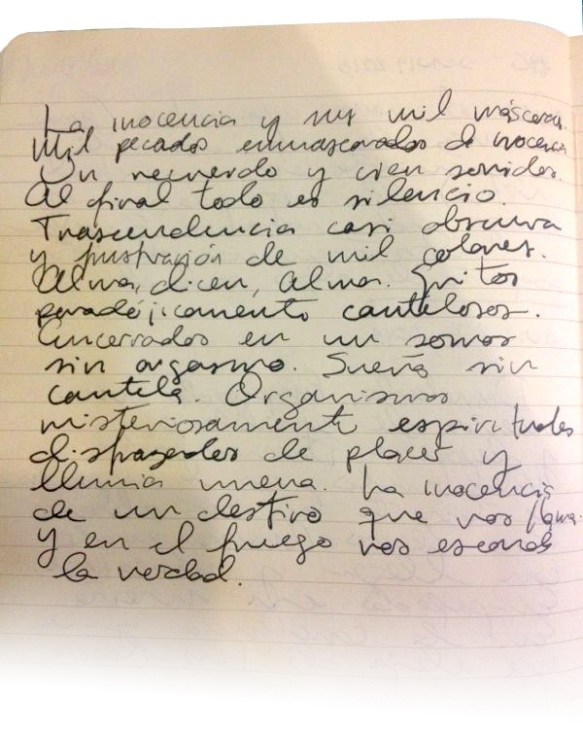 La inocencia y sus mil máscaras.
Mil pecados enmascarados de inocencia
Un recuerdo y cien sonidos.
Al final todo es silencio.
Trascendencia casi obscura
y frustración de mil colores.
Alma, dicen, Alma. Gritos
paradójicamente cautelosos.
Encerrados en un somos
sin orgasmo. Sueño sin
cautela. Organismos
misteriosamente espirituales
disfrazados de placer y
lluvia nueva. La inocencia
de un destino que nos llama.
Y en el fuego nos esconde
la verdad.